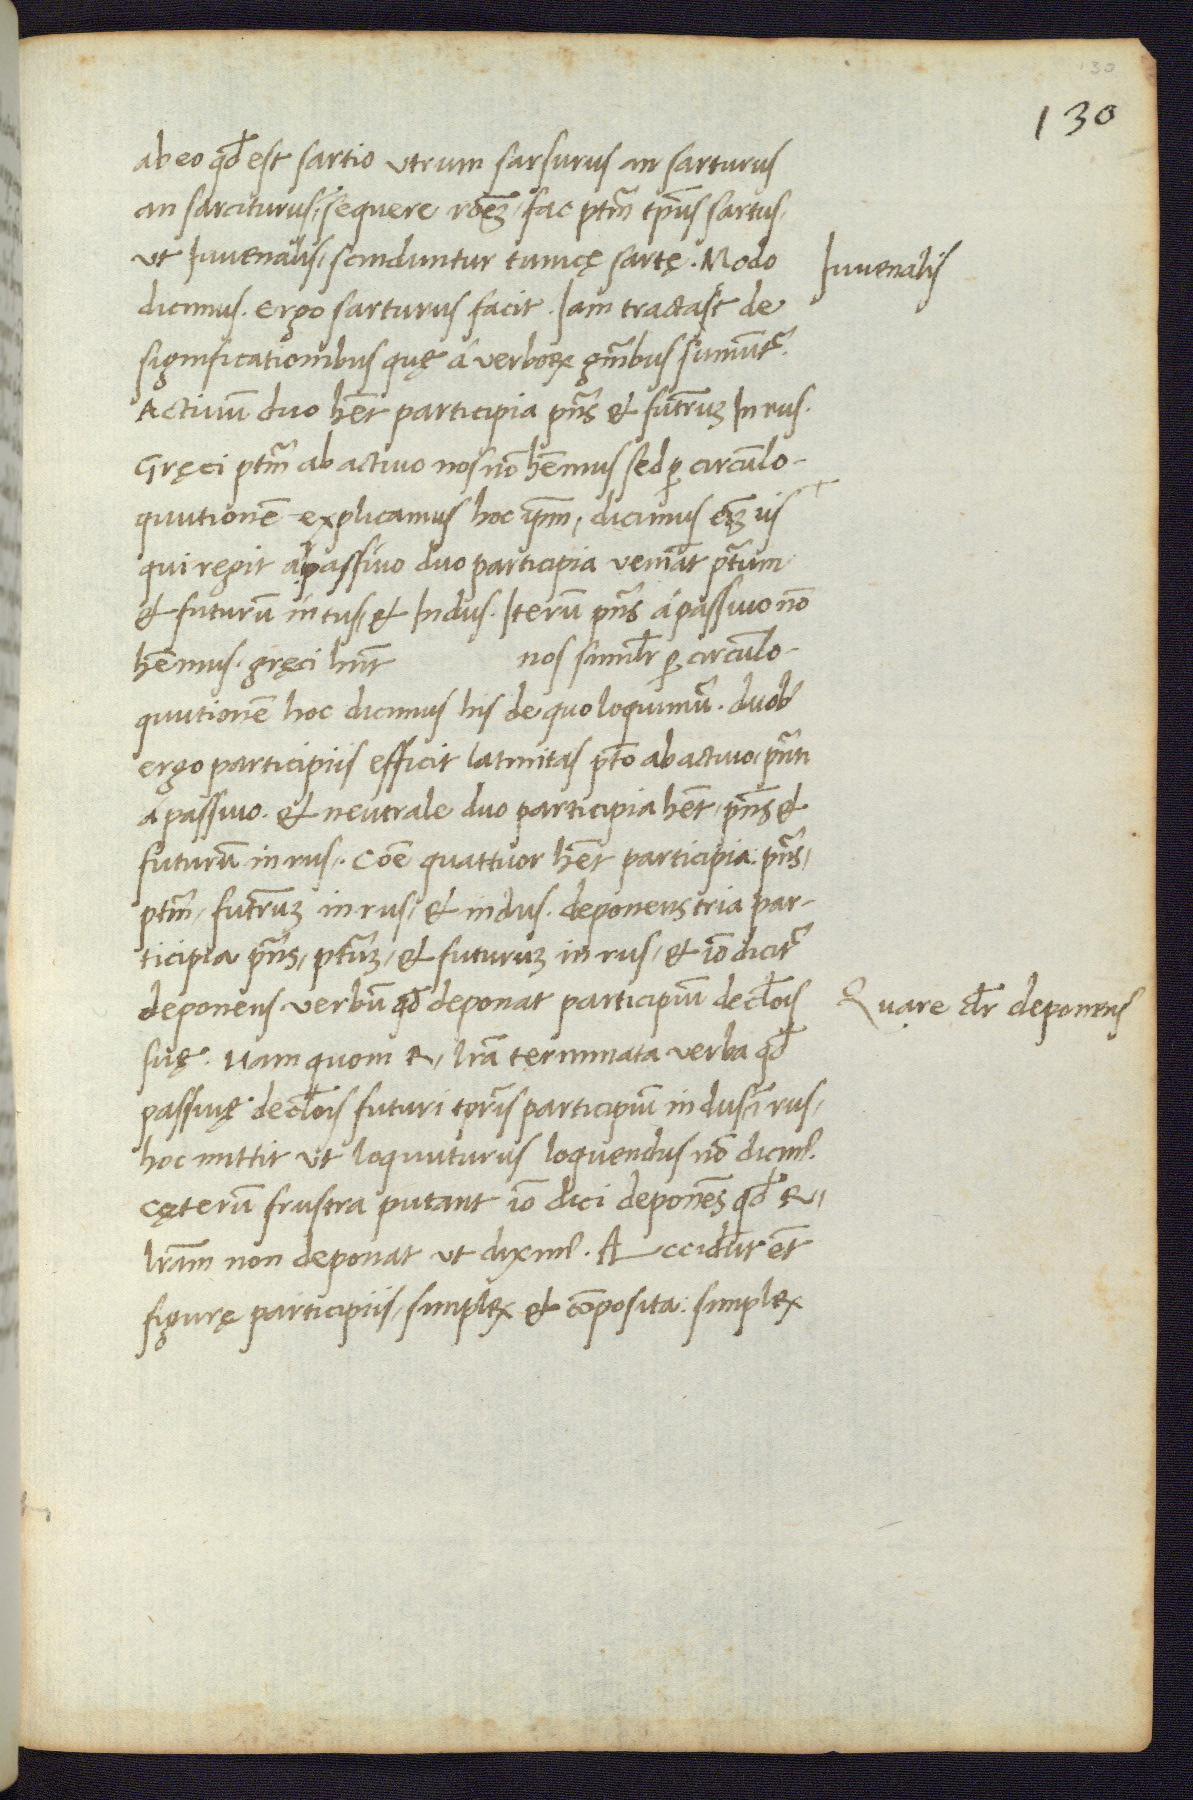 130
130
ab eo qđ est sartio utrum sarsurus an sarturus
an sarciturus, sequere rōēꝫ, fac ptm̄ tp̄us sartus,
ut Iuvenalis, scinduntur tunicę sartę. Modo
Iuvenalis
dicimus. Ergo sarturus facit. Iam tractat de
significationibus quę á verboꝝ gn̄ibus sumūt᷑.
Activū duo hēt participia pn̄s & futr̄uꝫ In rus.
Gręci ptm̄ ab activo nos nō hēmus sed ꝑ circūlo-
quutionē explicamus hoc ip̄m, dicimus em̄ is
qui regit a passivo duo participia veniāt pr̄tum
& futurū in tus, & In dus. Iterū pn̄s á passivo nō
hēmus. gręci hn̄t nos simil̄r ꝑ circūlo-
quutionē hoc dicimus his de quo loquimur̄. duob'
ergo participiis efficit latinitas pr̄to ab activo, pn̄ti
á passivo. & neutrale duo participia hēt, pn̄s &
futurū in rus. Cōe quattuor hēt participia: pn̄s,
ptm̄, futr̄uꝫ in rus, & in dus. deponens tria par-
ticipia pn̄s, ptūꝫ, & futuruꝫ in rus, & iō dicit᷑
deponens verbū qđ deponat participiū decl̄ois
Quare dr̄ deponens
suę. Nam quom R, lr̄a terminata verba qđ
passivę decl̄ois futuri tp̄ris participiū in dus, ī rus,
hoc mittit ut loquuturus loquendus nō dicim'.
Cęterū frustra putant iō dici deponēs qđ R,
lr̄am non deponat ut dixim'. Accidūt ēt
figurę participiis, simplex & cōposita: simplex